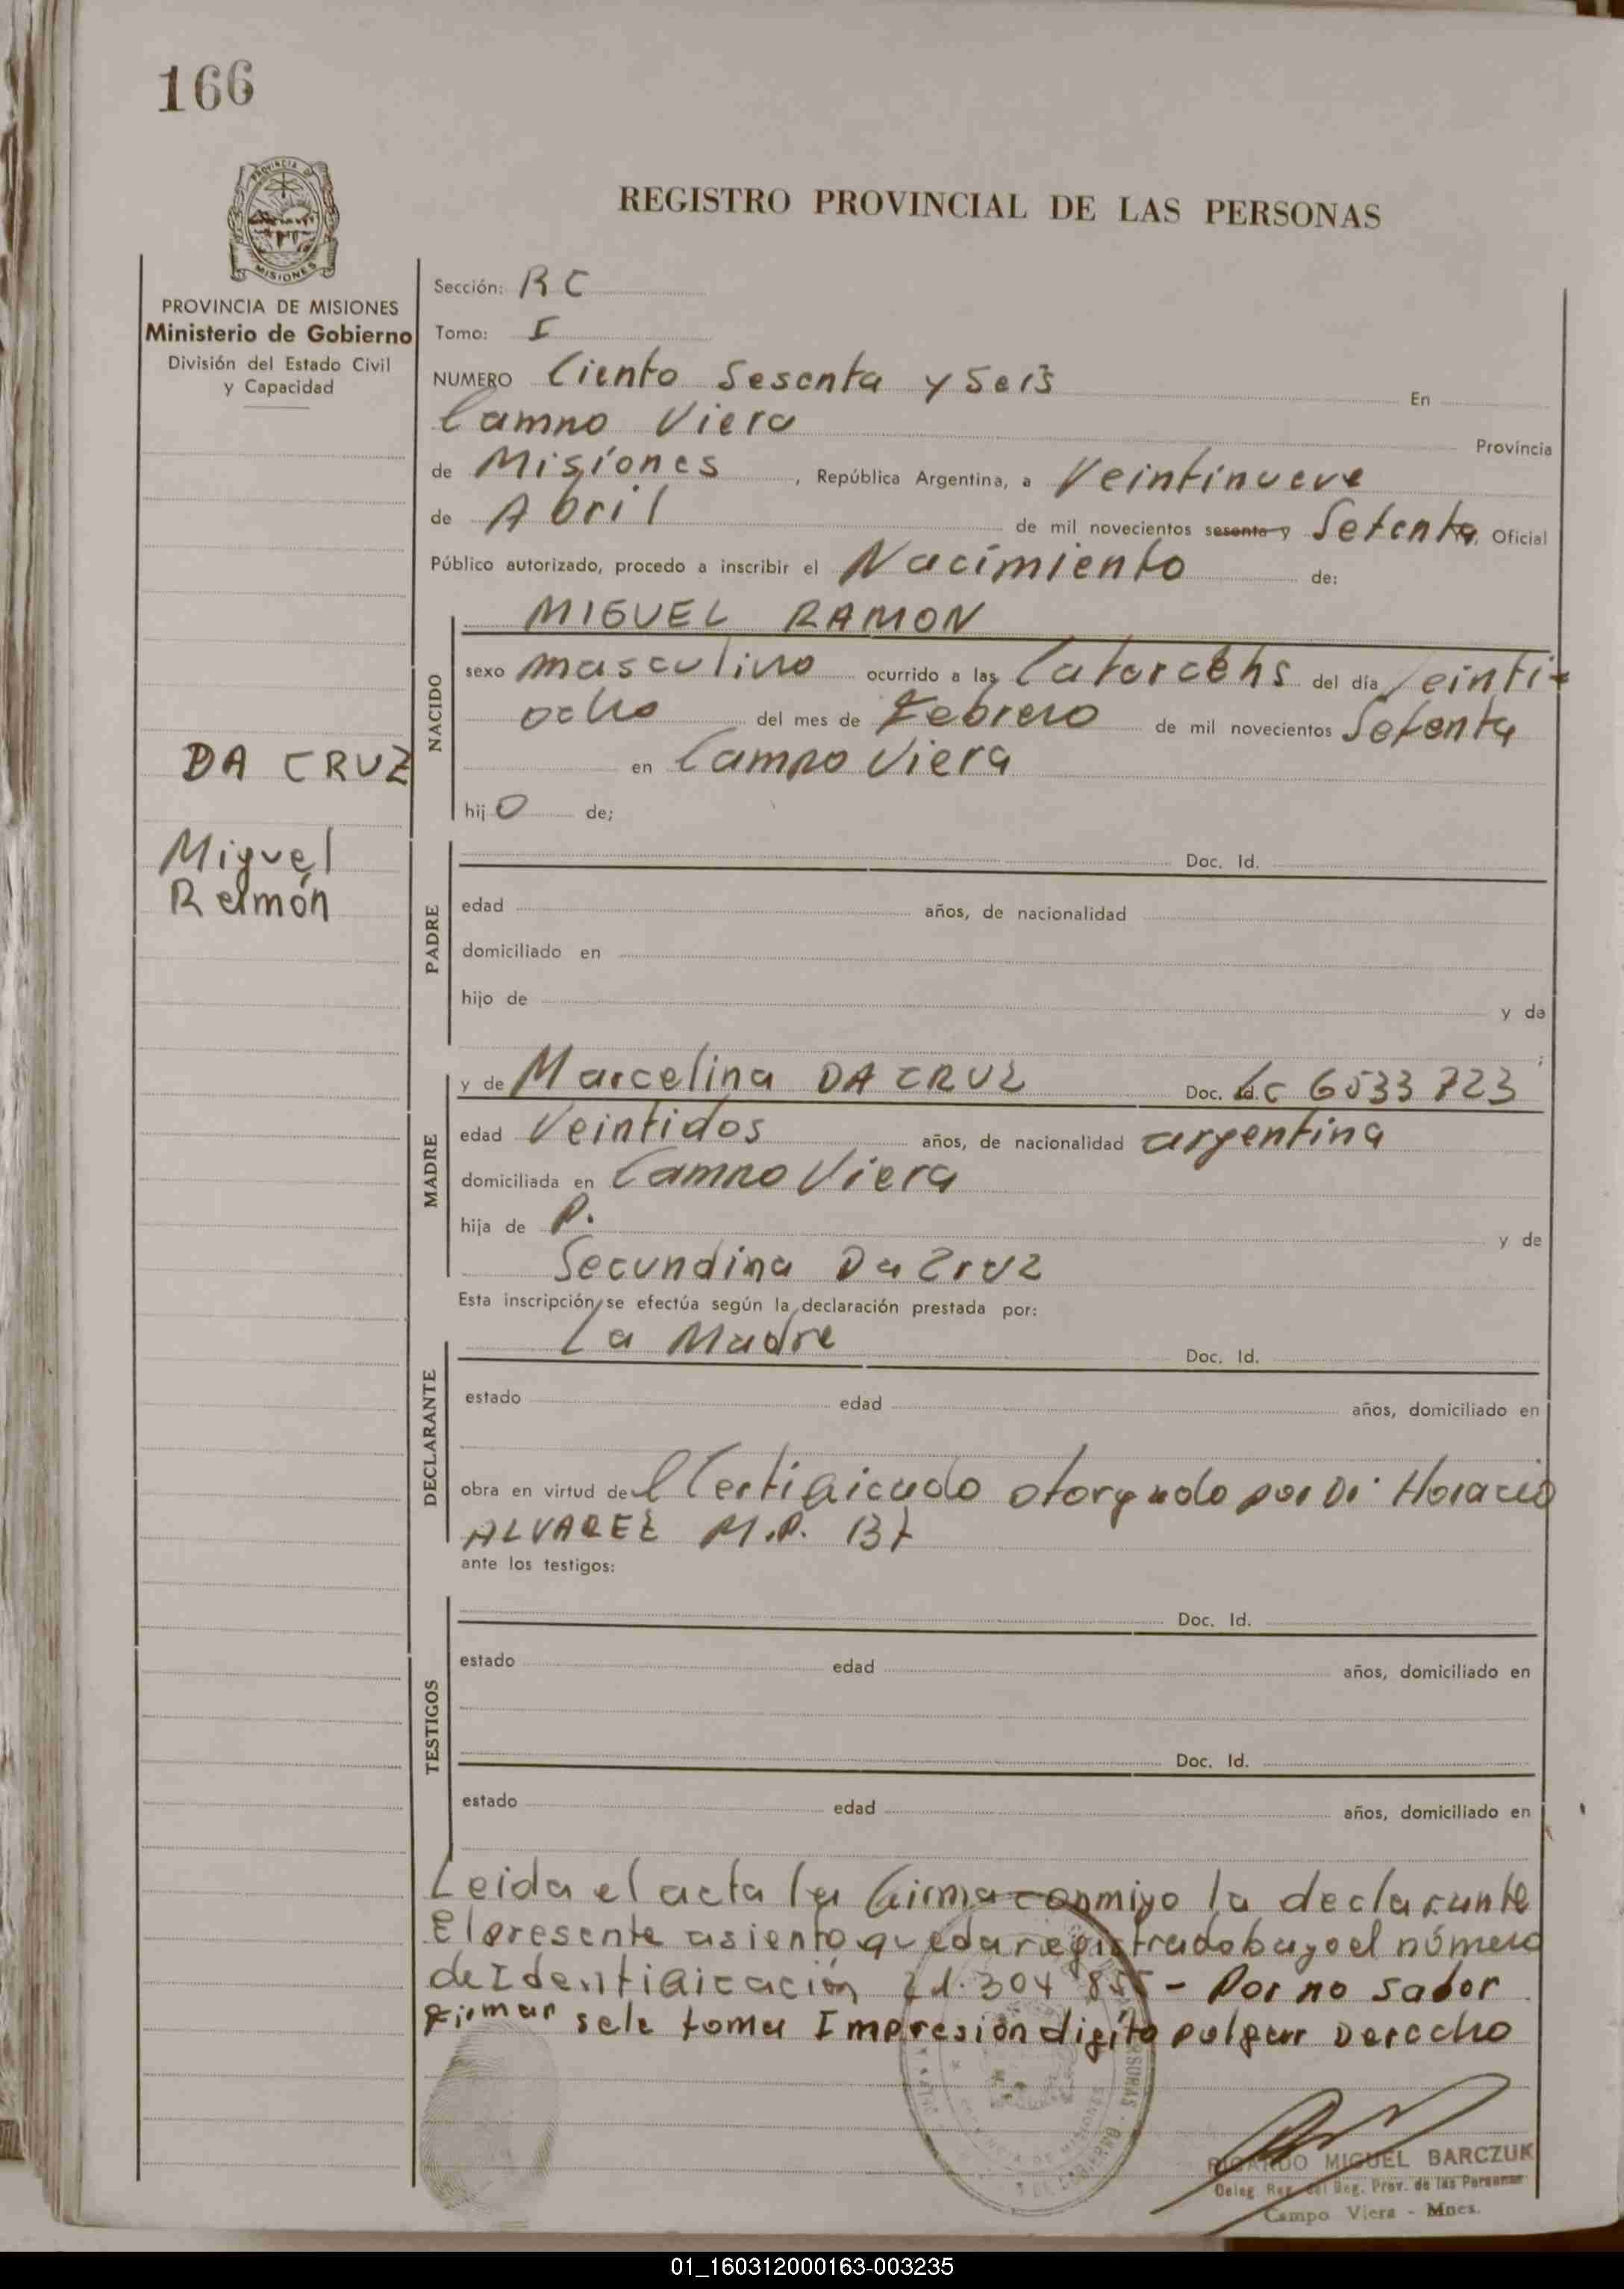 166
PROVINCIA DE
MISIONES
PROVINCIA DE MISIONES
Ministerio de Gobierno
División del Estado Civil
y Capacidad
REGISTRO PROVINCIAL DE LAS PERSONAS
Sección: RC
Tomo: I
NUMERO Ciento Sesenta y Seis En
Campo Viera Provincia
de Misiones, República Argentina, a Veintinueve
de Abril de mil novecientos sesenta y Setenta, Oficial
Público autorizado, procedo a inscribir el Nacimiento de:
DA CRUZ
Miguel
Ramón
NACIDO
MIGUEL RAMON
sexo masculino ocurrido a las Catorce hs del día Veinti-
ocho del mes de Febrero de mil novecientos Setenta
en Campo Viera
hijo de;
PADRE
Doc. Id.
edad años, de nacionalidad
domiciliado en
hijo de y de
MADRE
y de Marcelina DA CRUZ Doc. Id. LC 6533723
edad Veintidos años, de nacionalidad argentina
domiciliada en Campo Viera
hija de P. y de
Secundina Da Cruz
Esta inscripción se efectúa según la declaración prestada por:
DECLARANTE
La Madre Doc. Id.
estado edad años, domiciliado en
obra en virtud del Certificado otorgado por Dr Horacio
ALVAREZ M.P. 137
ante los testigos:
TESTIGOS
Doc. Id.
estado edad años, domiciliado en
Doc. Id.
estado edad años, domiciliado en
Leida el acta la firma conmigo la declarante
El presente asiento queda registrado bajo el número
de Identificación 21.304 855 - Por no saber
firmar sele toma Impresión digito pulgar Derecho
RICARDO MIGUEL BARCZUK
Deleg Reg. del Reg. Prov. de las Personas
Campo Viera - Mnes.
01_160312000163-003235